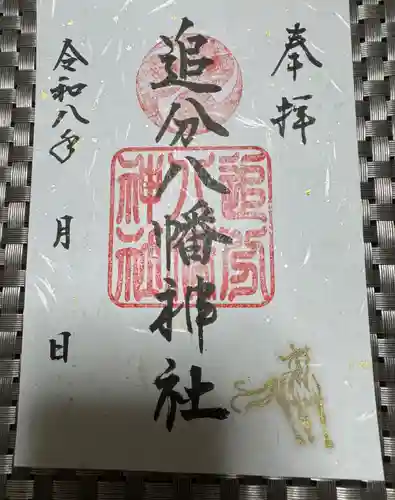 奉拝
追分八幡神社
令和八年 月 日
追分
八幡
神社